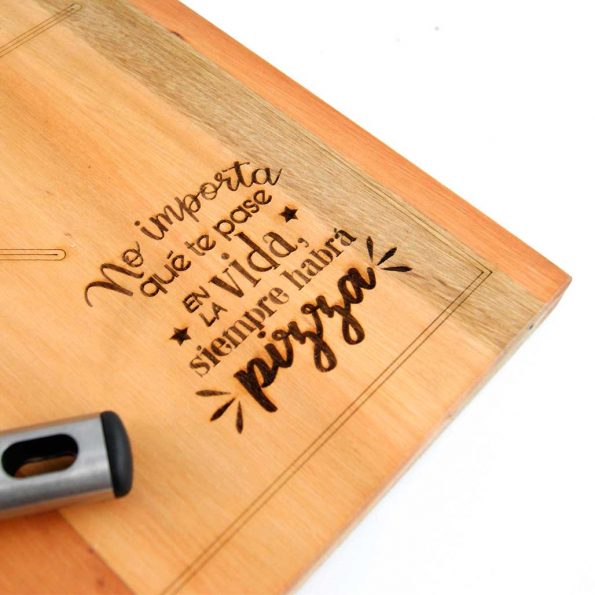 No importa
qué te pase
EN
LA vida,
siempre habrá
pizza